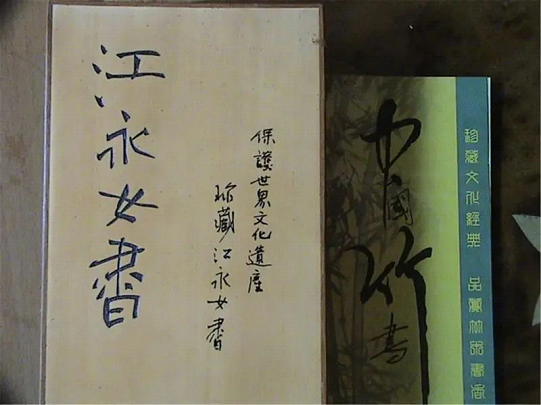 江永女書
保護世界文化遺產
珍藏江永女書
中國竹書
珍藏文化經典 品鑒竹木書香